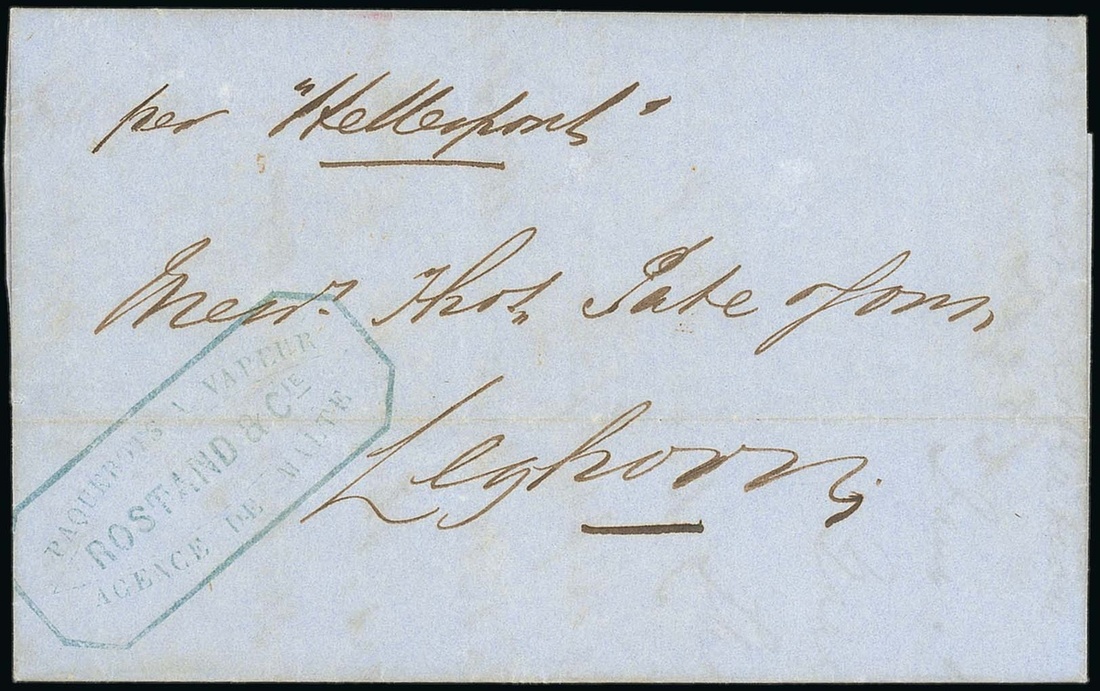 per "Hellespont"
Messrs. Thos. Pate & Sons
Leghorn
PAQUEBOTS A VAPEUR
ROSTAND & CIE
AGENCE DE MALTE